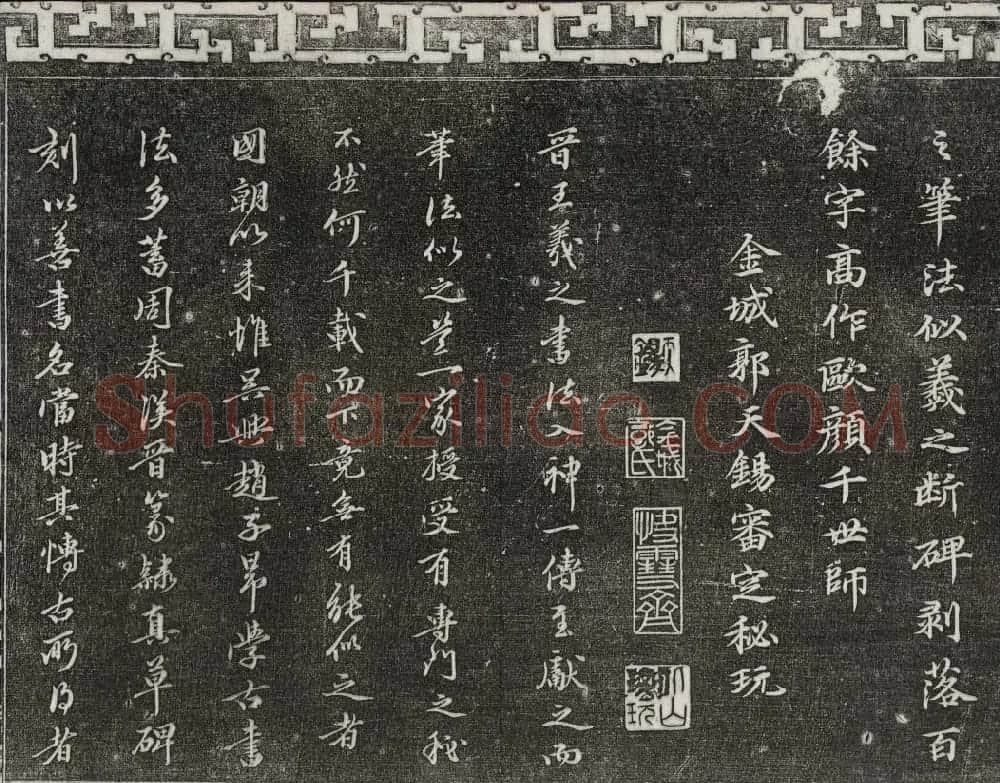 之筆法似羲之断碑剥落百
餘字高作歐顔千世師
金城郭天錫審定秘玩
金城郭氏
快雪齋
晉王羲之書法入神一傳至獻之而
筆法似之豈一家授受有專門之秘
不然何千載而下竟無有能似之者
國朝以来惟吴興趙子昂學古書
法多蓄周秦漢晉篆隸真草碑
刻以善書名當時其博古所得者
Shufaziliao.COM